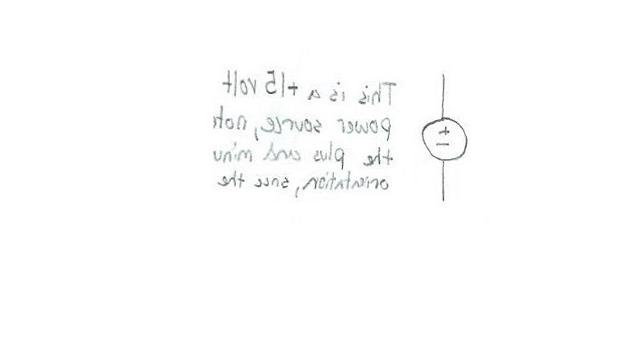 This is a +15 volt
power source, note
the plus and minu
orientation, since the
+
-